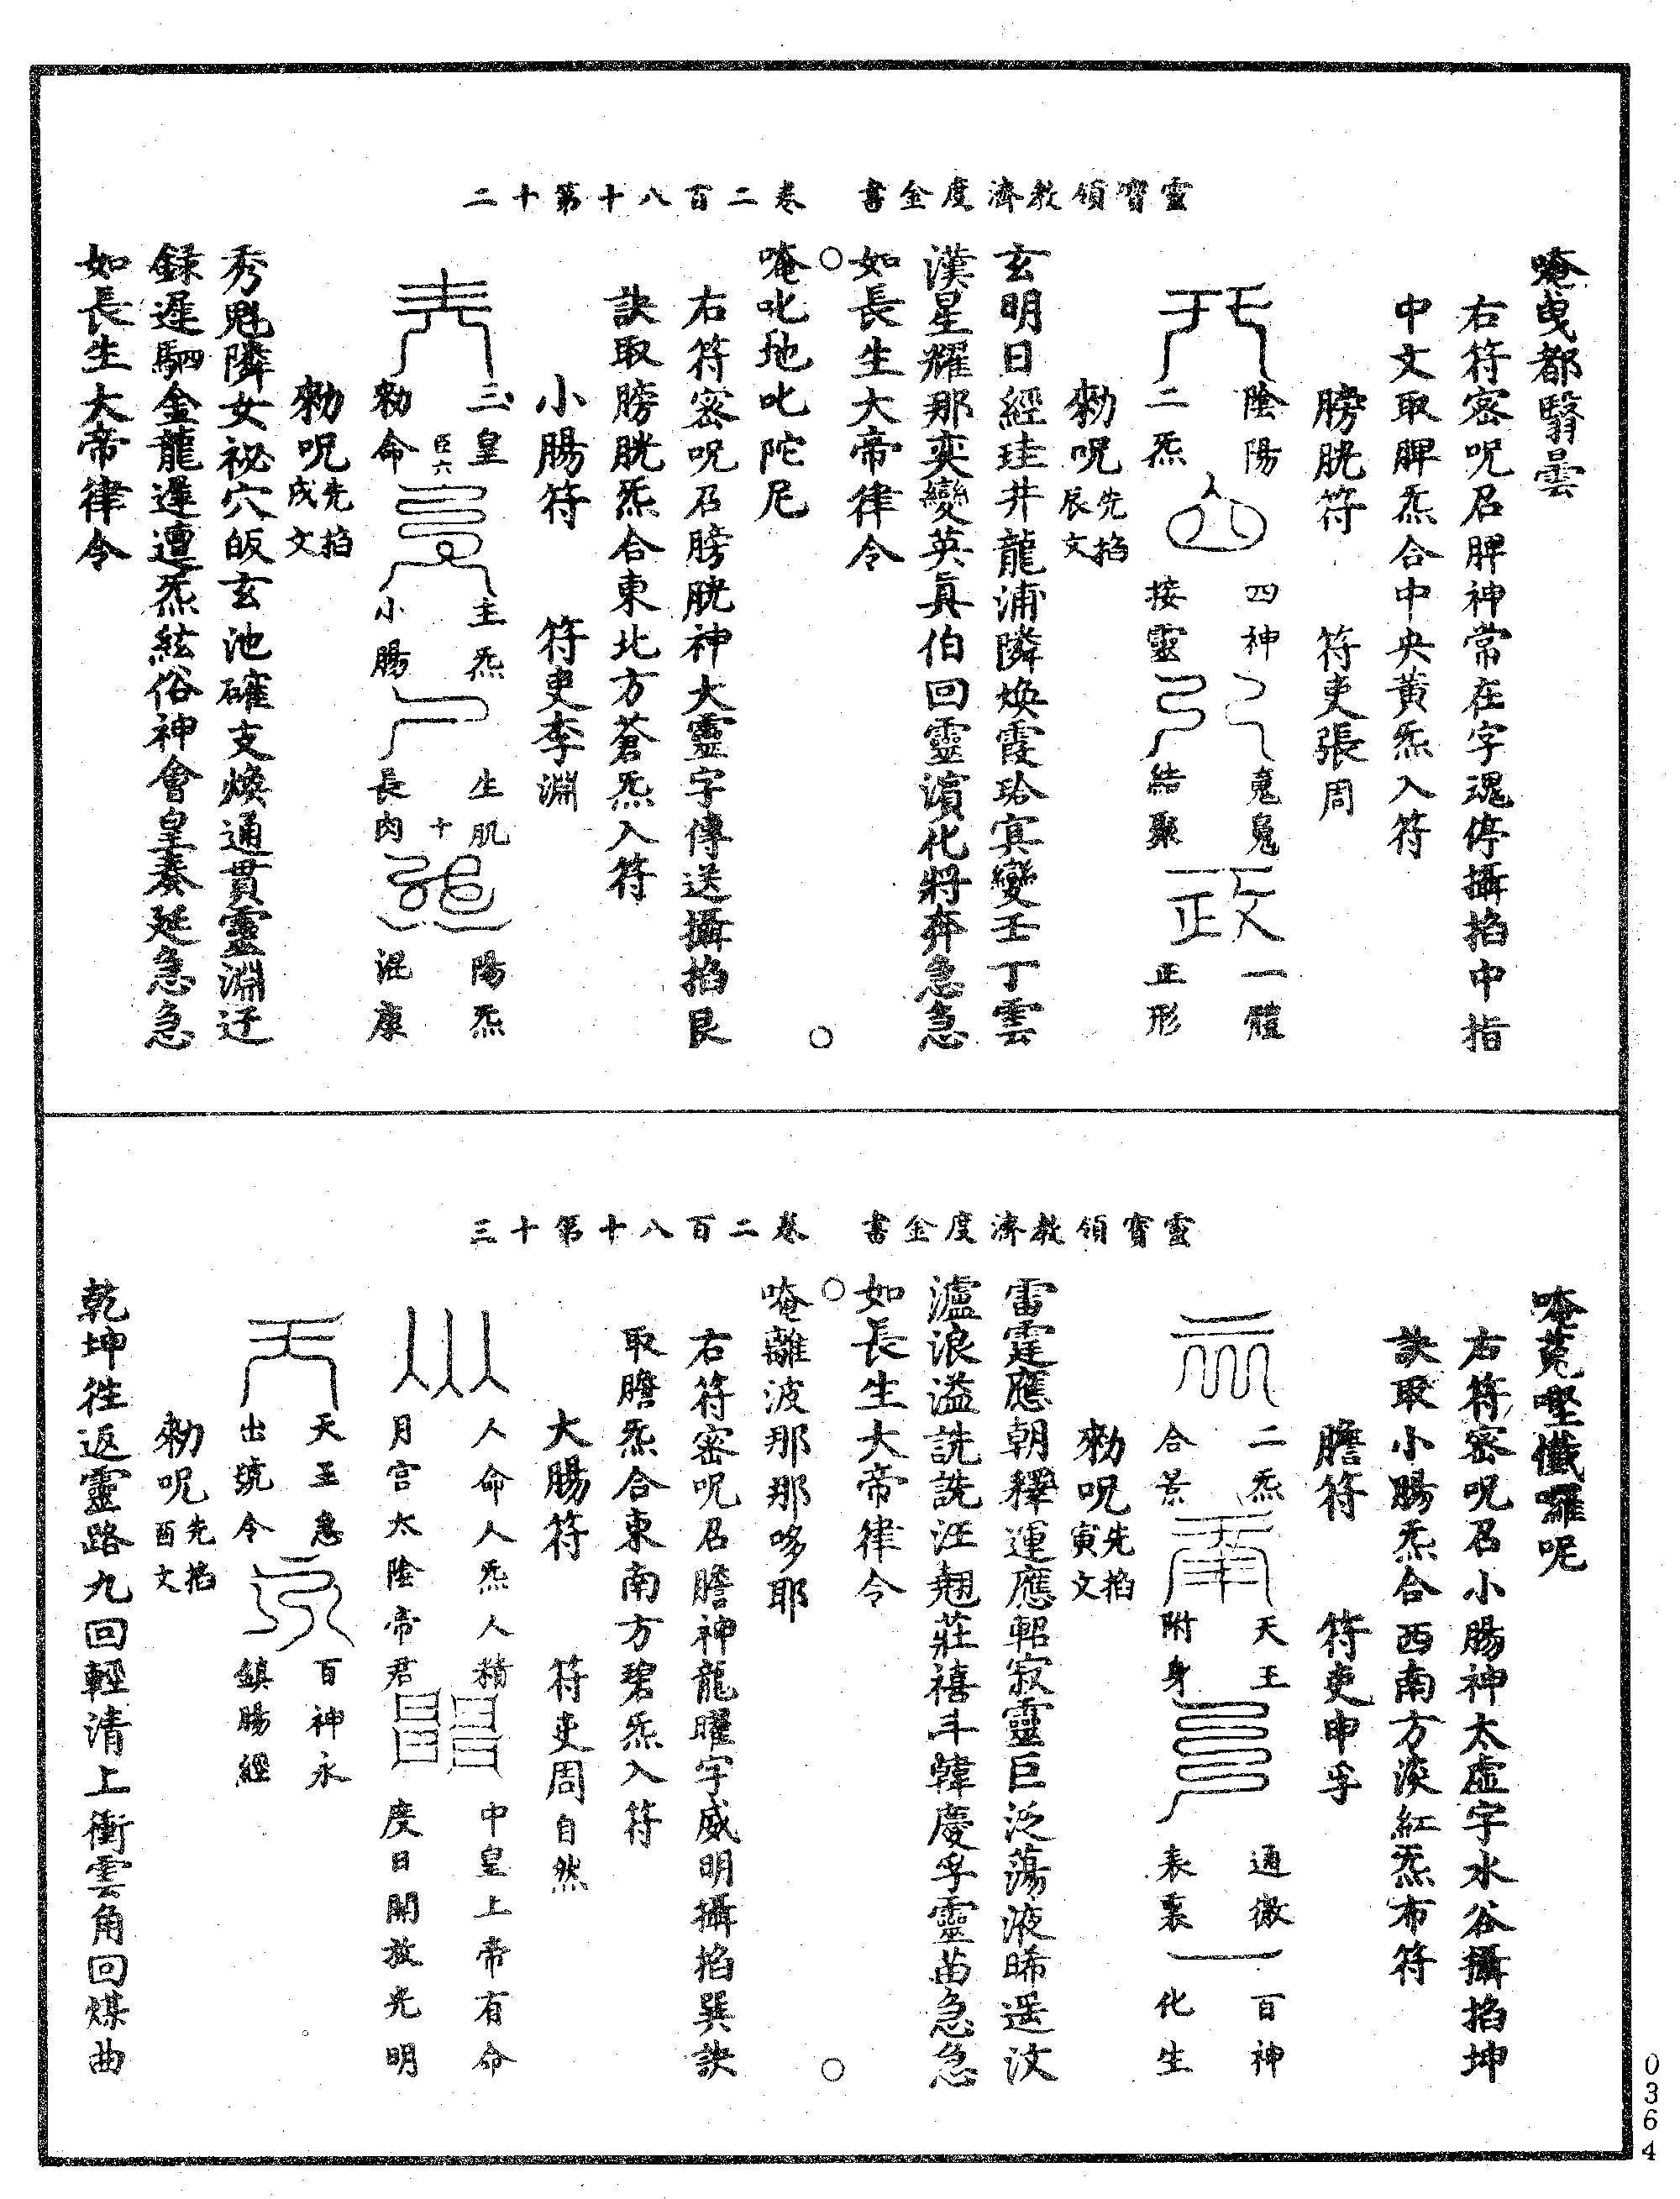 靈寶領教濟度金書　卷二百八十第十二
唵曳都毉曇
右符密呪召脾神常在字魂停攝掐中指
中文取脾炁合中央黃炁入符
膀胱符　符吏張周
陰陽　四神　魂魄　一體
二炁　接靈　結聚　正形
勑呪先掐辰文
玄明日經珪井龍浦隣煥霞珆寘變壬丁雲
漢星耀那奕變英真伯回靈濱化將奔急急
如長生大帝律令
唵叱地叱陀尼
右符密呪召膀胱神大靈字傳送攝掐艮
訣取膀胱炁合東北方蒼炁入符
小腸符　符吏李淵
三皇　主炁　生肌　陽炁
臣六　十
勑命　小腸　長肉　混康
勑呪先掐戌文
秀魁隣女祕穴皈玄池確支煥通貫靈淵迂
錄遲駟金龍遲邅炁絃俗神會皇奏延急急
如長生大帝律令
靈寶領教濟度金書　卷二百八十第十三
唵莬㘑懺囉呢
右符密呪召小腸神太虛字水谷攝掐坤
訣取小腸炁合西南方淡紅炁布符
膽符　符吏申孚
二炁　天王　通微　百神
合景　附身　表裏　化生
勑呪先掐寅文
雷霆應朝釋運應軺寂靈巨泛蕩液晞遥汶
瀘浪溢詵詵汪翹莊禧斗韓慶孚靈苗急急
如長生大帝律令
唵離波那那哆耶
右符密呪召膽神龍曜字威明攝掐巽訣
取膽炁合東南方碧炁入符
大腸符　符吏周自然
人命人炁人精　中皇上帝有命
月宫太陰帝君　度日開放光明
天王急　百神永
出號令　鎮腸經
勑呪先掐酉文
乾坤徃返靈路九回輕清上衝雲角回煤曲
0364